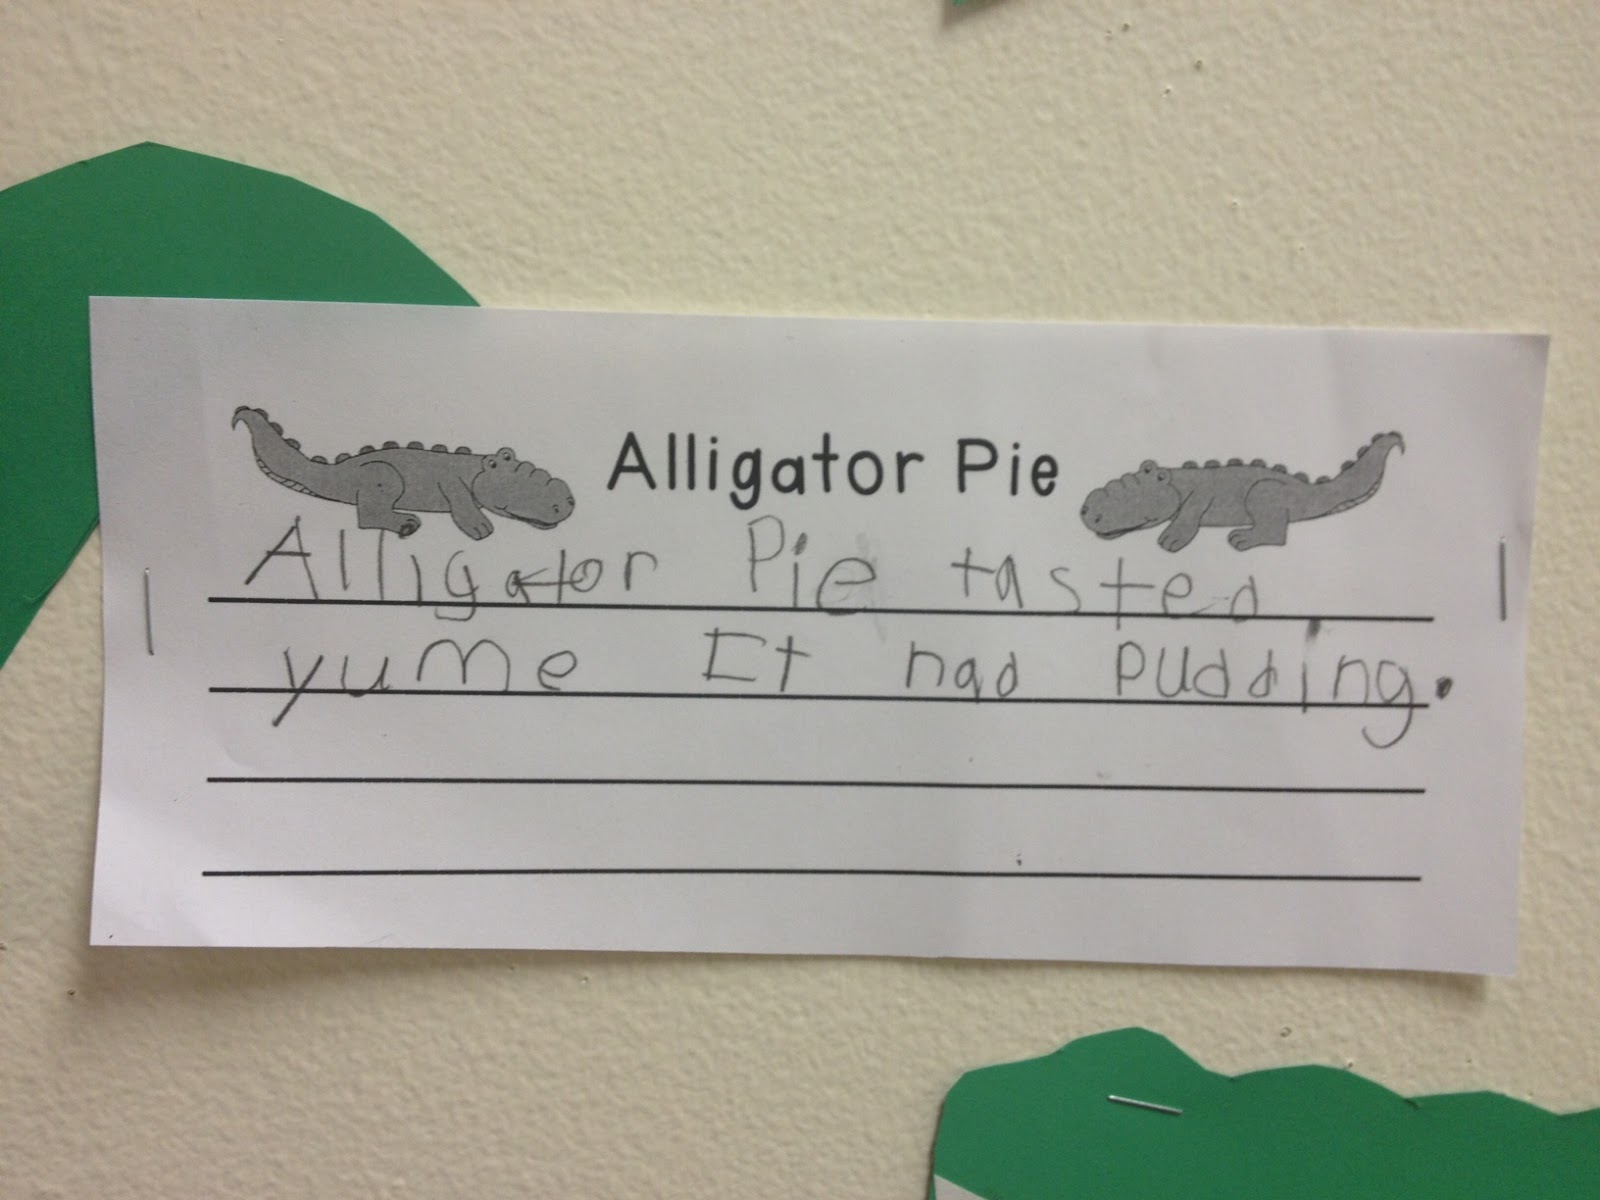 Alligator Pie
Alligator Pie tasted
yume It had pudding.